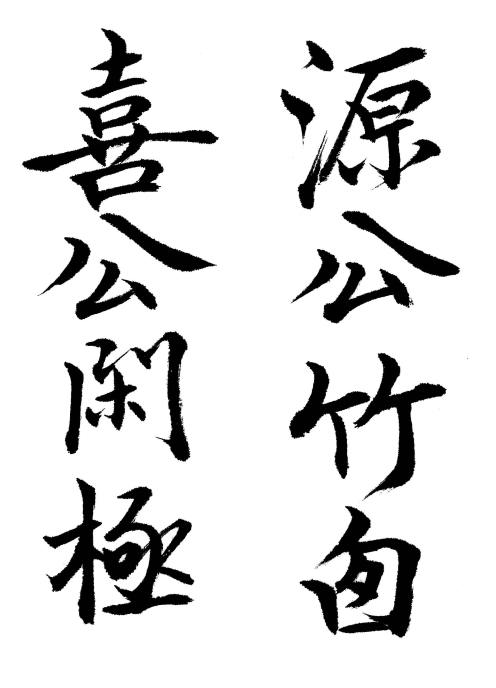 源公竹囱
喜公閑極